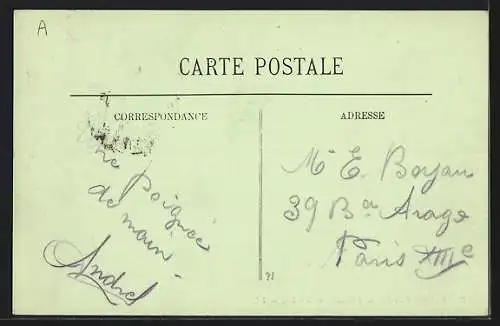 A
CARTE POSTALE
CORRESPONDANCE
ADRESSE
Une Poignée
de main -
André
Mr E. Boyau
39 Bd Arago
Paris XIIIe